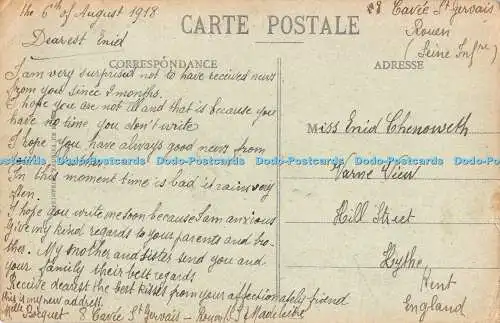 the 6th of August 1918
CARTE POSTALE
8 Cavée St Gervais
Rouen
(Seine Infre)
Dearest Enid
CORRESPONDANCE
I am very surprised not to have received news
from you since 2 months.
I hope you are not ill and that is because you
have no time you don't write
I hope you have always good news from
In this moment time is bad it rains very
often.
I hope you write me soon because I am anxious
Give my kind regards to your parents and bro
ther. My mother and sister send you and
your family their best regards
Receive dearest the best kisses from your affectionately friend
this is my new address
Melle Bocquet 8 Cavée St Gervais - Rouen S.I Madeleine
ADRESSE
Miss Enid Chenoweth
Varne View
Hill Street
Hythe
Kent
England
Dodo-Postcards Dodo-Postcards Dodo-Postcards Dodo-Postcards Dodo-Postcards